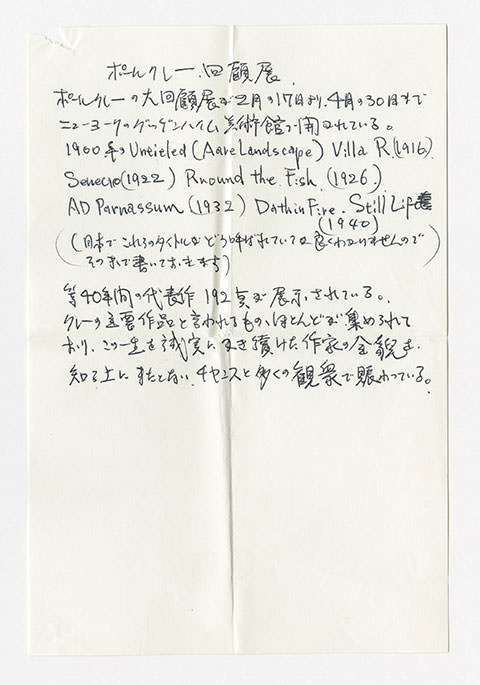 ポールクレー.回顧展.
ポールクレーの大回顧展が2月の17日より.4月の30日まで
ニューヨークのグッゲンハイム美術館で開かれている。
1900年の Untietled (Aare Landscape) Villa R. (1916).
Senecio (1922) Rround the Fish. (1926.)
AD Parnassum (1932) Dathin Fire. Still Life
(1940)
(日本でこれらのタイトルがどう呼ばれているか良くわかりませんので
そのまま書いておきます)
等40年間の代表作192点が展示されている。
クレーの主要作品と言われてもの、ほとんどが集められて
おり、この一生を誠実に生き續けた作家の全貌を
知る上にまたとないチャンスと多くの観衆で賑わっている。